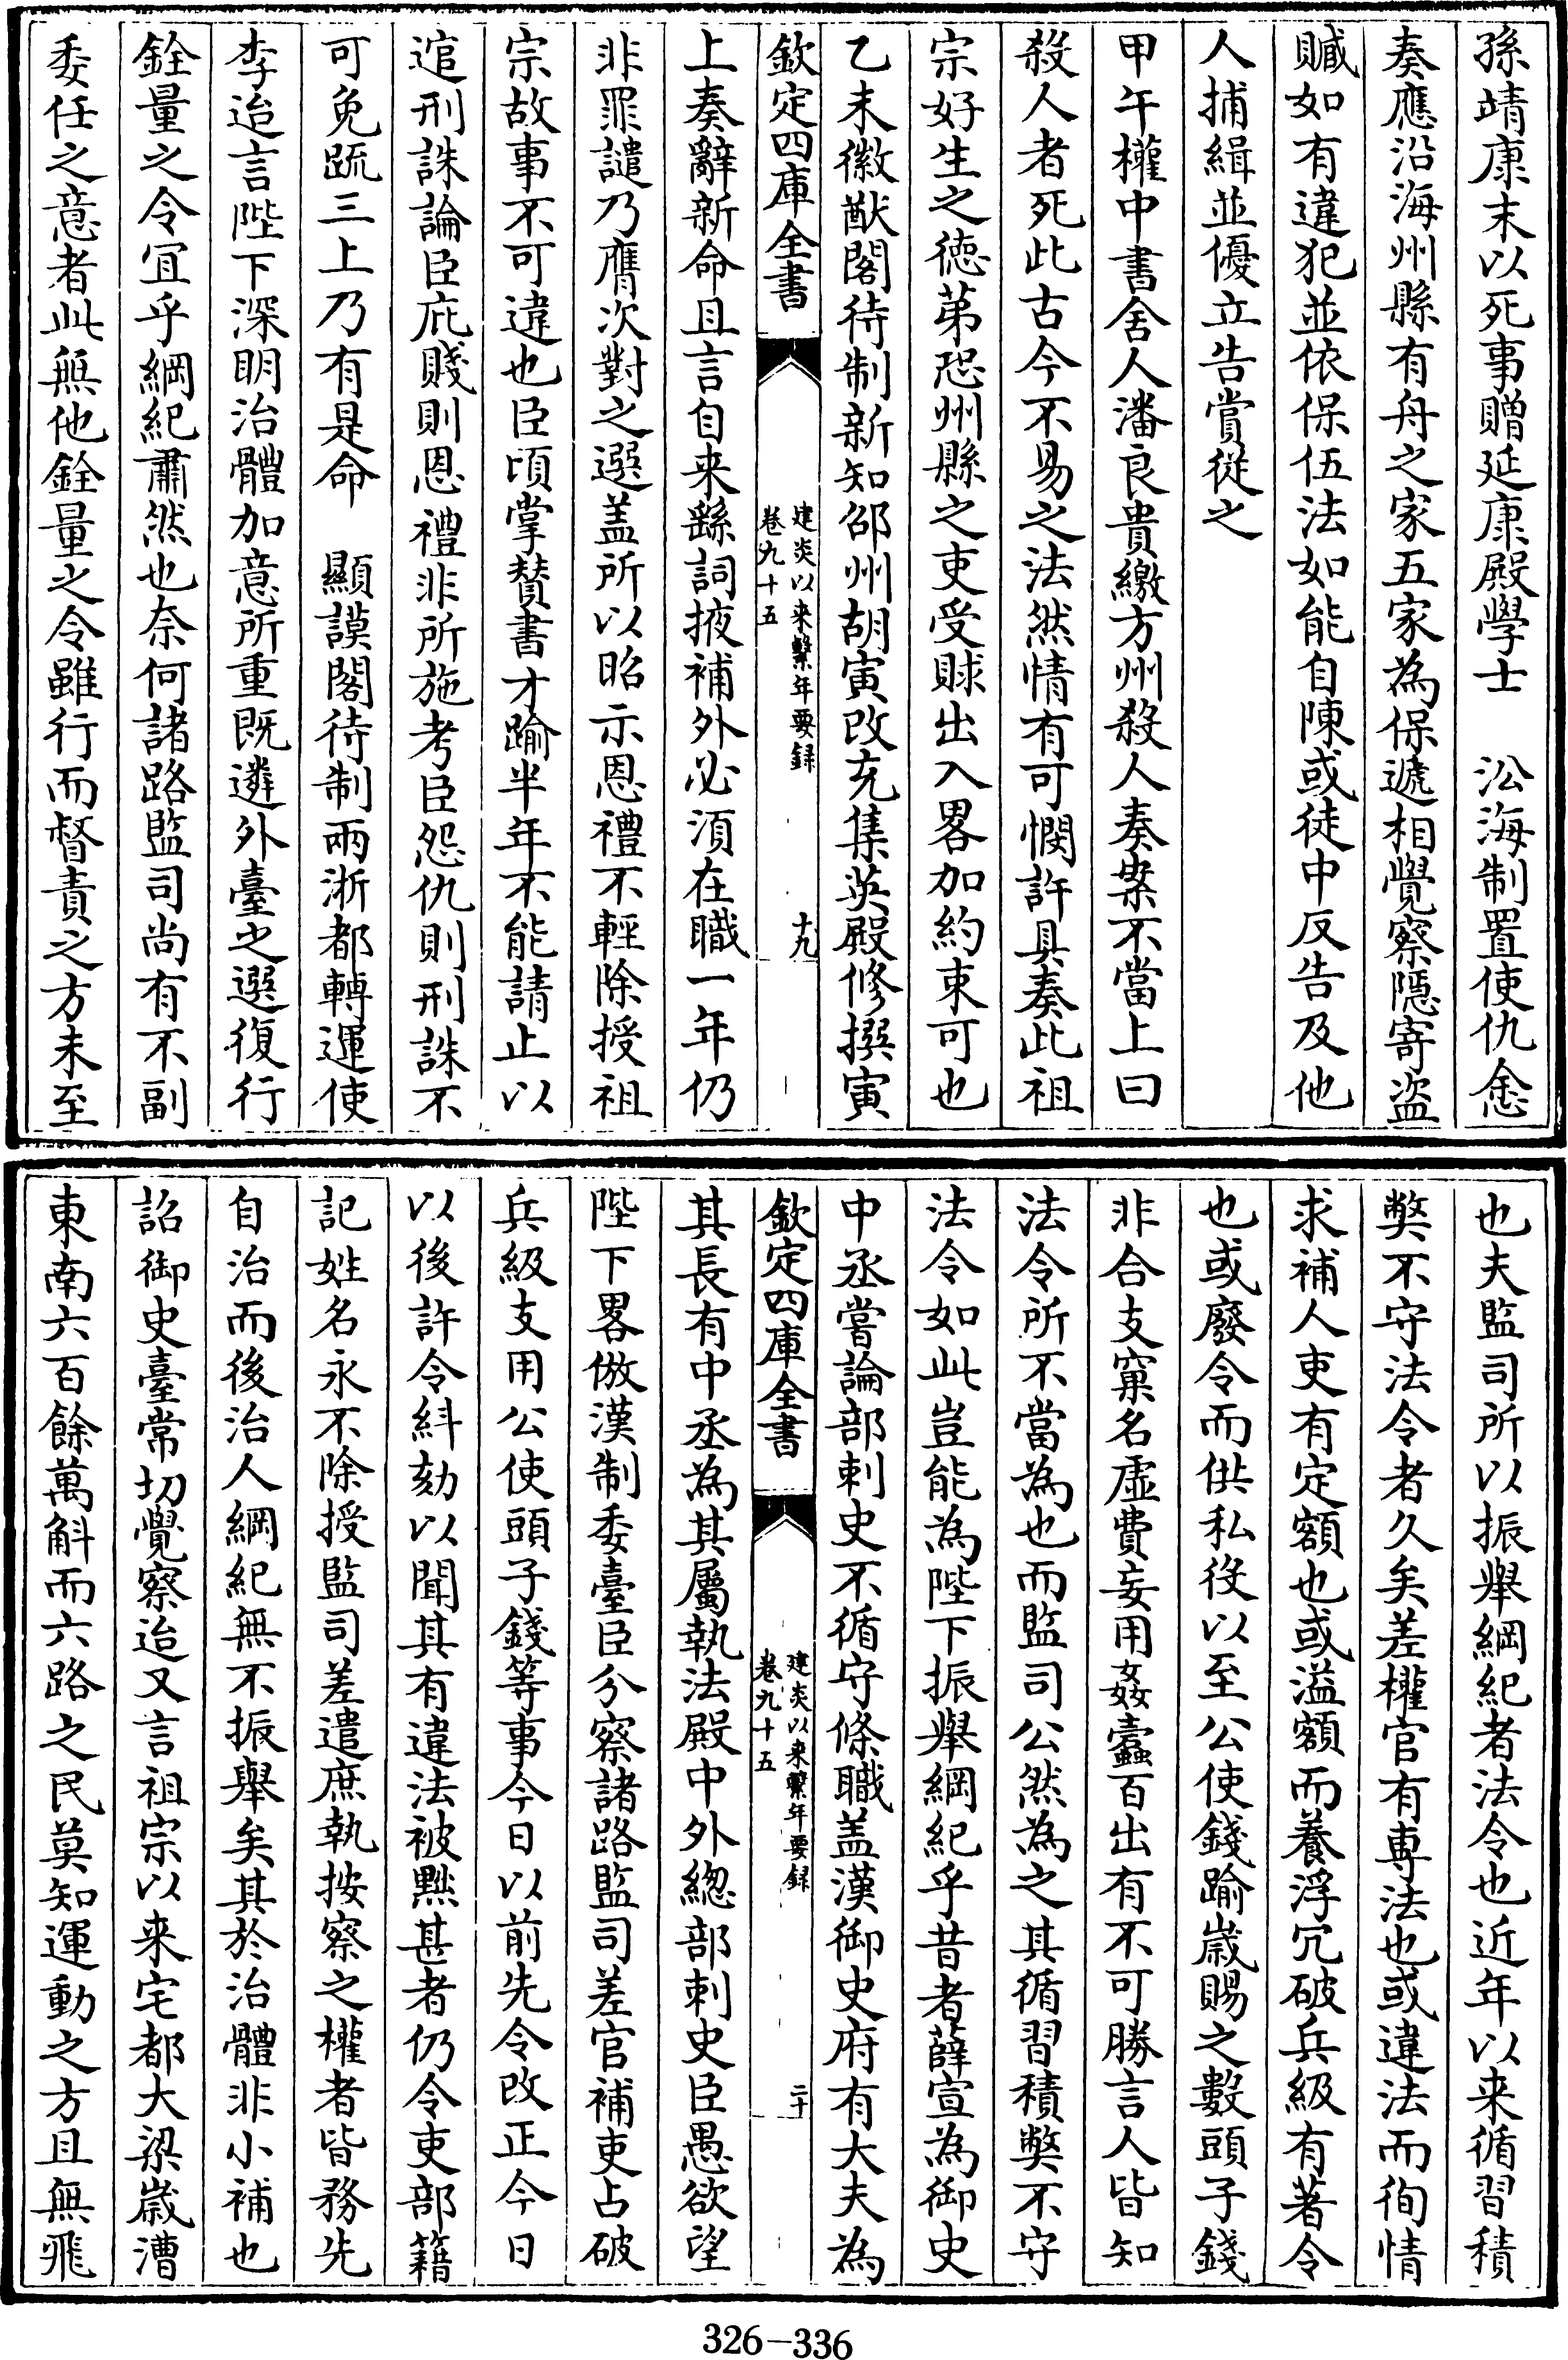 孫靖康末以死事贈延康殿學士　㳂海制置使仇悆
奏應沿海州縣有舟之家五家為保遞相覺察隱寄盜
贓如有違犯並依保伍法如能自陳或徒中反告及他
人捕緝並優立告賞從之
甲午權中書舍人潘良貴繳方州殺人奏案不當上曰
殺人者死此古今不易之法然情有可憫許具奏此祖
宗好生之德第恐州縣之吏受賕出入畧加約束可也
乙未徽猷閣待制新知邵州胡寅改充集英殿修撰寅
欽定四庫全書
建炎以来繫年要録
卷九十五
十九
上奏辭新命且言自来繇詞掖補外必須在職一年仍
非罪譴乃膺次對之選盖所以昭示恩禮不輕除授祖
宗故事不可違也臣頃掌贊書才踰半年不能請止以
逭刑誅論臣庇賤則恩禮非所施考臣怨仇則刑誅不
可免疏三上乃有是命　顯謨閣待制兩浙都轉運使
李迨言陛下深明治體加意所重既遴外臺之選復行
銓量之令宜乎綱紀肅然也奈何諸路監司尚有不副
委任之意者此無他銓量之令雖行而督責之方未至
也夫監司所以振舉綱紀者法令也近年以来循習積
弊不守法令者久矣差權官有專法也或違法而徇情
求補人吏有定額也或溢額而養浮冗破兵級有著令
也或廢令而供私役以至公使錢踰歲賜之數頭子錢
非合支窠名虛費妄用姦蠹百出有不可勝言人皆知
法令所不當為也而監司公然為之其循習積弊不守
法令如此豈能為陛下振舉綱紀乎昔者薛宣為御史
中丞嘗論部刺史不循守條職盖漢御史府有大夫為
欽定四庫全書
建炎以来繫年要録
卷九十五
二十
其長有中丞為其屬執法殿中外總部刺史臣愚欲望
陛下畧倣漢制委臺臣分察諸路監司差官補吏占破
兵級支用公使頭子錢等事今日以前先令改正今日
以後許令糾劾以聞其有違法被黜甚者仍令吏部籍
記姓名永不除授監司差遣庶執按察之權者皆務先
自治而後治人綱紀無不振舉矣其於治體非小補也
詔御史臺常切覺察迨又言祖宗以来宅都大梁歲漕
東南六百餘萬斛而六路之民莫知運動之方且無飛
326-336